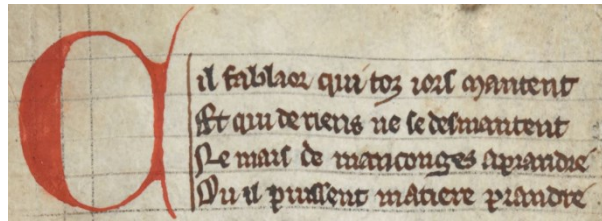 Cil fableor qui toz iors mantent
Et qui de riens ne se desmantent
Ne mais de mançonges aprandre
Ou il puissent matiere prandre